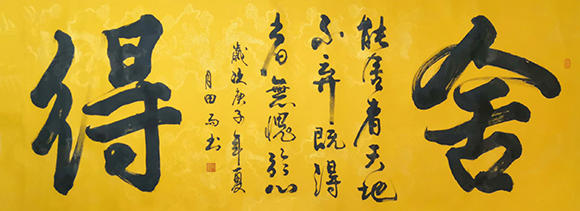 舍
能舍者天地
不弃既得
者無愧於心
歲次庚子年夏
月田书
得